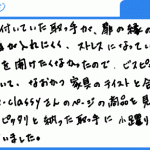 付いていた取っ手が、扉の縁の
が入れにくく、ストレスになってい
を開けたくなかったので、ビスピッ
いて、なおかつ家具のテイストと合
・classyさんのページの商品を見
ピッタリと納った取っ手に小躍り
いました。